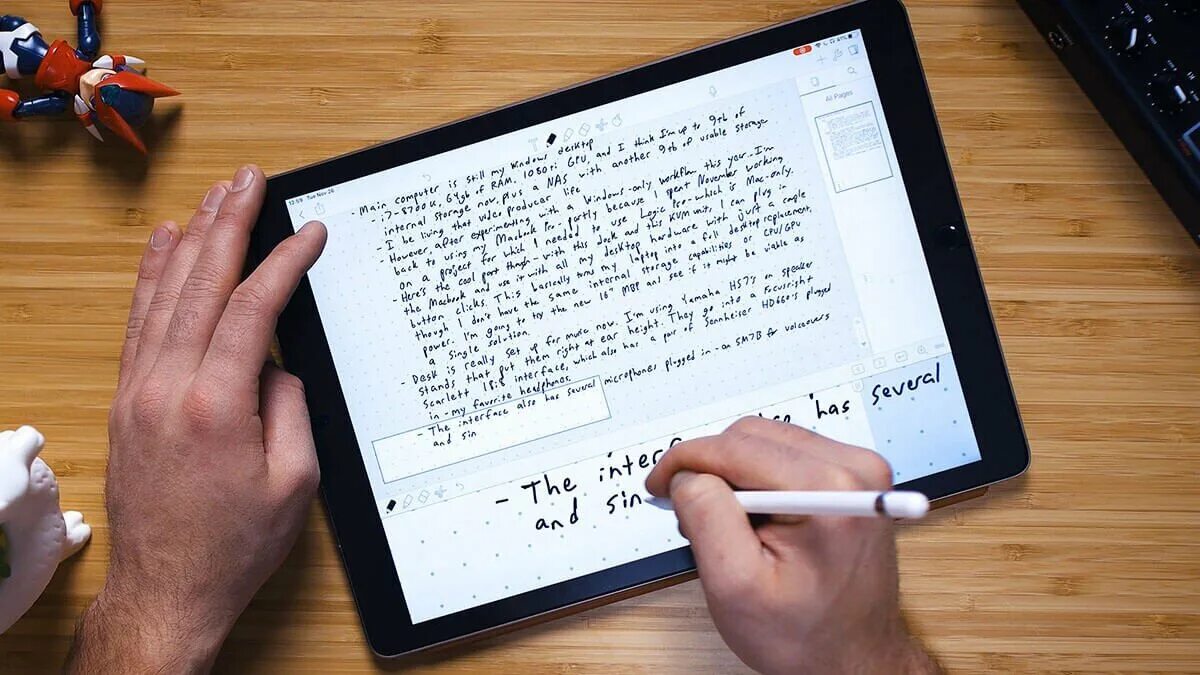 12:59 Tue Nov 26
61%
All Pages
- Main computer is still my Windows desktop
- i7-8700K, 64gb of RAM, 1080ti GPU, and I think I'm up to 9tb of
internal storage now, plus a NAS with another 9tb of usable storage
- I be living that video producer life
- However, after experimenting with a Windows-only workflow this year, I'm
back to using my Macbook Pro - partly because I spent November working
on a project for which I needed to use Logic Pro - which is Mac-only.
- Here's the cool part though - with this dock and this KVM unit, I can plug in
the Macbook and use it with all my desktop hardware with just a couple
button clicks. This basically turns my laptop into a full desktop replacement,
though I don't have the same internal storage capabilities or CPU/GPU
power. I'm going to try the new 16" MBP and see if it might be viable as
a single solution.
- Desk is really set up for music now. I'm using Yamaha HS7's on speaker
stands that put them right at ear height. They go into a Focusright
Scarlett 18i8 interface, which also has a pair of Sennheiser HD660-s plugged
in - my favorite headphones.
- The interface also has several microphones plugged in - an SM7B for voiceovers
and sin
- The inter has several
and sin